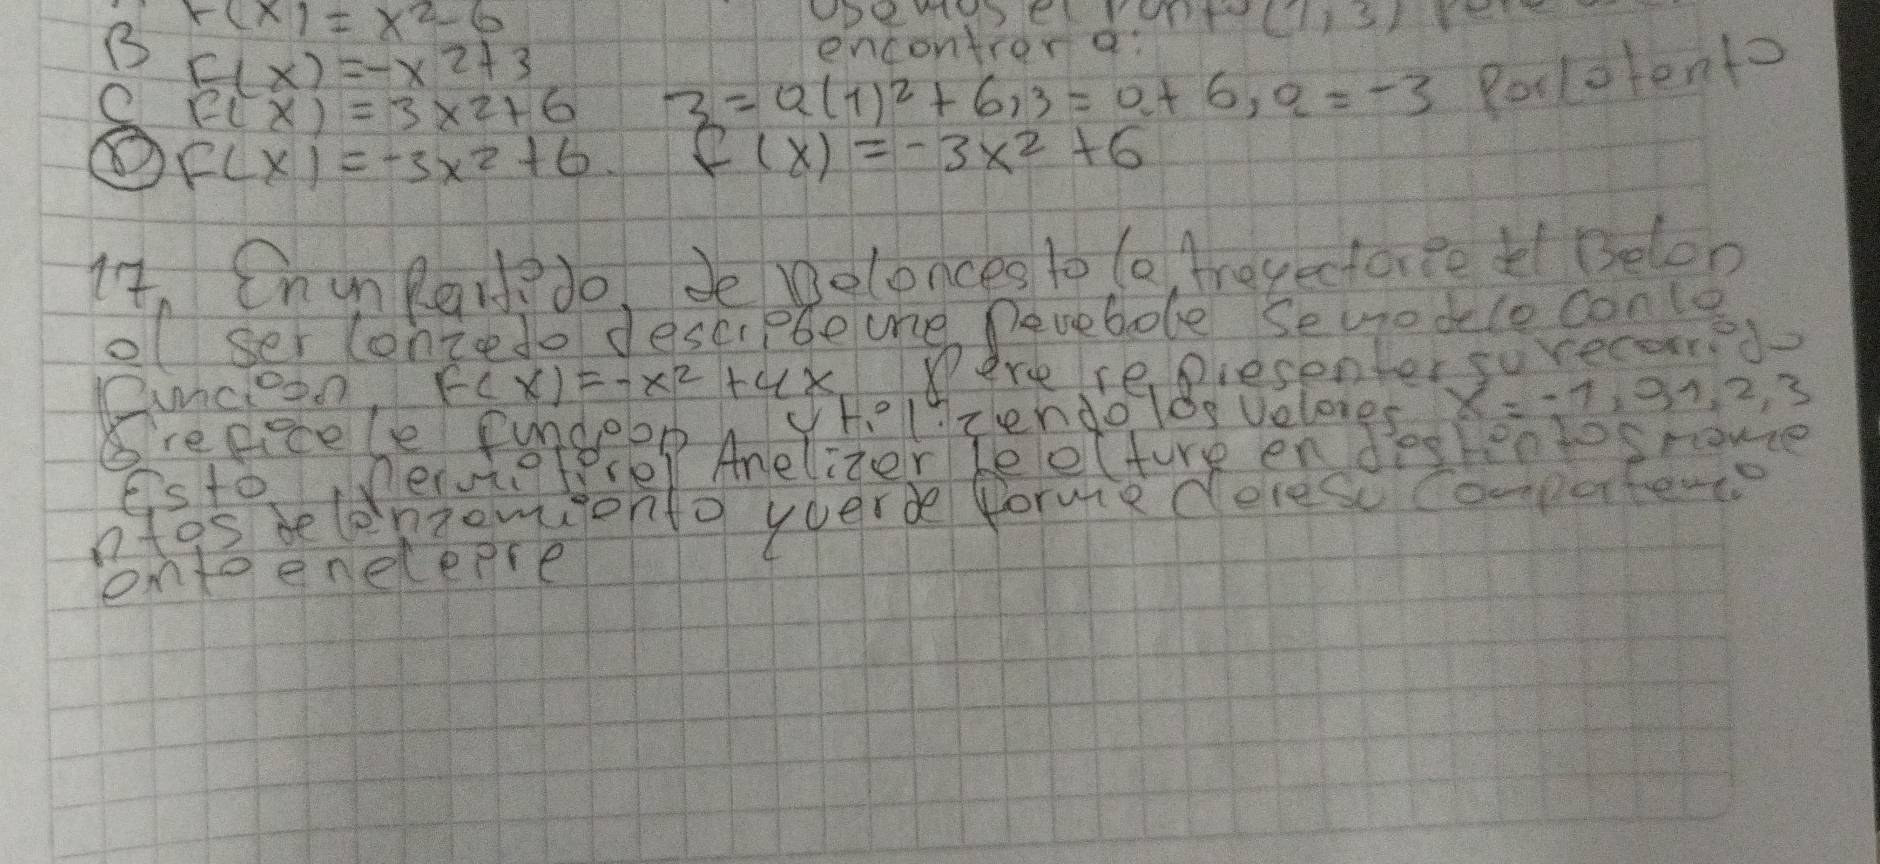 F(x) = x2-6
usemos el Punto (1,3) Para
B F(x) =-x2+3
encontrar a:
C F(x) = 3x2+6 3 = a(1)2 + 6, 3 = a + 6, a = -3 Por lo tanto
D F(x) = -3x2+6. F(x) = -3x2 +6
17. En un Partido de Baloncesto la trayectoria el Balon
al ser lanzado describe una Parabola Se modela con la
Funcion F(x) = -x2 +4x Para representar su recorrido
Grafica la funcion utilizando los valores x = -1, 0, 1, 2, 3
Esto Permitira Analizar la altura en distintos mome
ntos de lanzamiento y ver de forma clara su comportami
ento en el aire